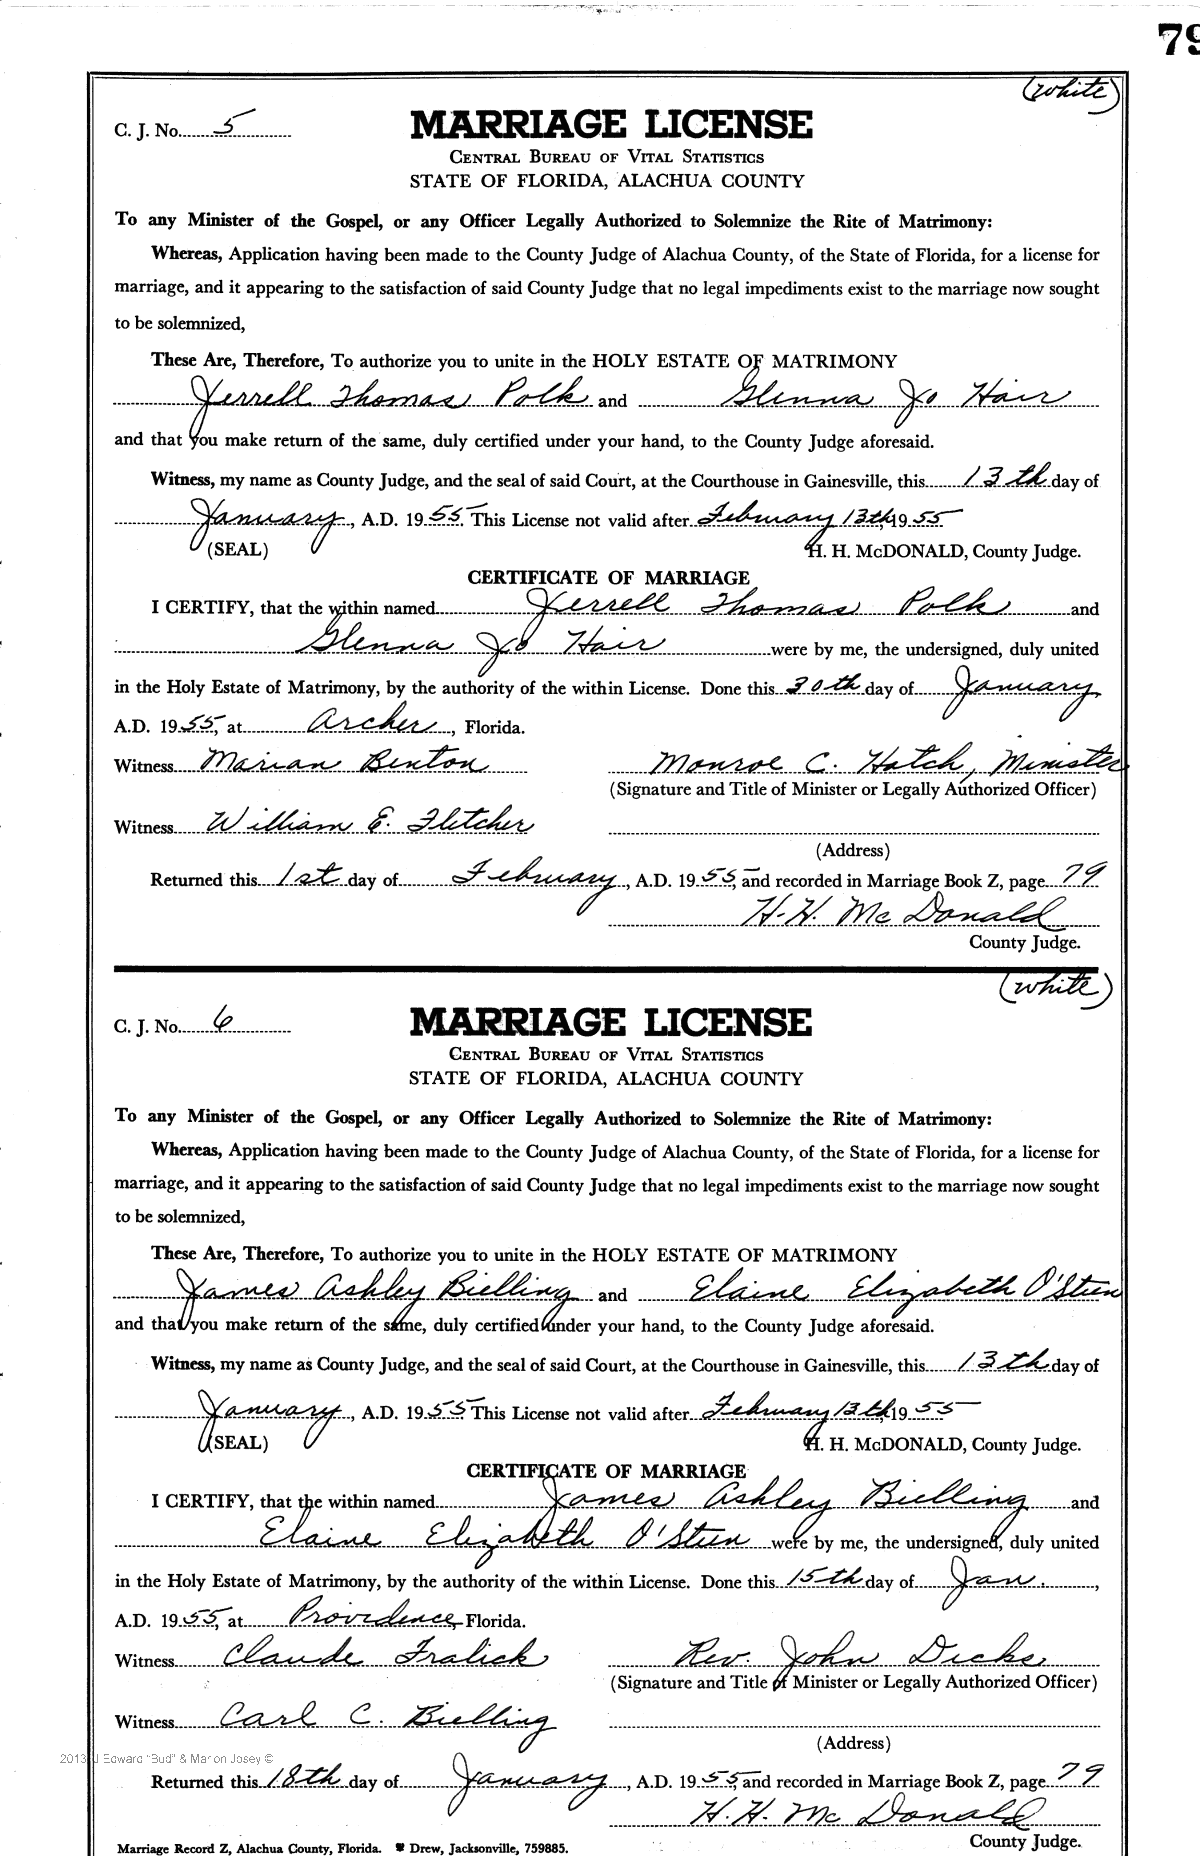 79
(white)
C. J. No. 5 MARRIAGE LICENSE
CENTRAL BUREAU OF VITAL STATISTICS
STATE OF FLORIDA, ALACHUA COUNTY
To any Minister of the Gospel, or any Officer Legally Authorized to Solemnize the Rite of Matrimony:
Whereas, Application having been made to the County Judge of Alachua County, of the State of Florida, for a license for
marriage, and it appearing to the satisfaction of said County Judge that no legal impediments exist to the marriage now sought
to be solemnized,
These Are, Therefore, To authorize you to unite in the HOLY ESTATE OF MATRIMONY
Jerrell Thomas Polk and Glenna Jo Hair
and that you make return of the same, duly certified under your hand, to the County Judge aforesaid.
Witness, my name as County Judge, and the seal of said Court, at the Courthouse in Gainesville, this 13th day of
January, A.D. 1955 This License not valid after February 13th, 1955
(SEAL) H. H. McDONALD, County Judge.
CERTIFICATE OF MARRIAGE
I CERTIFY, that the within named Jerrell Thomas Polk and
Glenna Jo Hair were by me, the undersigned, duly united
in the Holy Estate of Matrimony, by the authority of the within License. Done this 30th day of January,
A.D. 1955, at Archer, Florida.
Witness Marian Benton Monroe C. Hatch, Minister
(Signature and Title of Minister or Legally Authorized Officer)
Witness William E. Fletcher
(Address)
Returned this 1st day of February, A.D. 1955, and recorded in Marriage Book Z, page 79
H. H. McDonald
County Judge.
(white)
C. J. No. 6 MARRIAGE LICENSE
CENTRAL BUREAU OF VITAL STATISTICS
STATE OF FLORIDA, ALACHUA COUNTY
To any Minister of the Gospel, or any Officer Legally Authorized to Solemnize the Rite of Matrimony:
Whereas, Application having been made to the County Judge of Alachua County, of the State of Florida, for a license for
marriage, and it appearing to the satisfaction of said County Judge that no legal impediments exist to the marriage now sought
to be solemnized,
These Are, Therefore, To authorize you to unite in the HOLY ESTATE OF MATRIMONY
James Ashley Bielling and Elaine Elizabeth O'Steen
and that you make return of the same, duly certified under your hand, to the County Judge aforesaid.
Witness, my name as County Judge, and the seal of said Court, at the Courthouse in Gainesville, this 13th day of
January, A.D. 1955 This License not valid after February 13th, 1955
(SEAL) H. H. McDONALD, County Judge.
CERTIFICATE OF MARRIAGE
I CERTIFY, that the within named James Ashley Bielling and
Elaine Elizabeth O'Steen were by me, the undersigned, duly united
in the Holy Estate of Matrimony, by the authority of the within License. Done this 15th day of Jan.,
A.D. 1955, at Providence, Florida.
Witness Claude Fralick Rev. John Dicks
(Signature and Title of Minister or Legally Authorized Officer)
Witness Carl C. Bielling
(Address)
2013 J Edward "Bud" & Marion Josey ©
Returned this 18th day of January, A.D. 1955, and recorded in Marriage Book Z, page 79
H. H. McDonald
County Judge.
Marriage Record Z, Alachua County, Florida. Drew, Jacksonville, 759885.